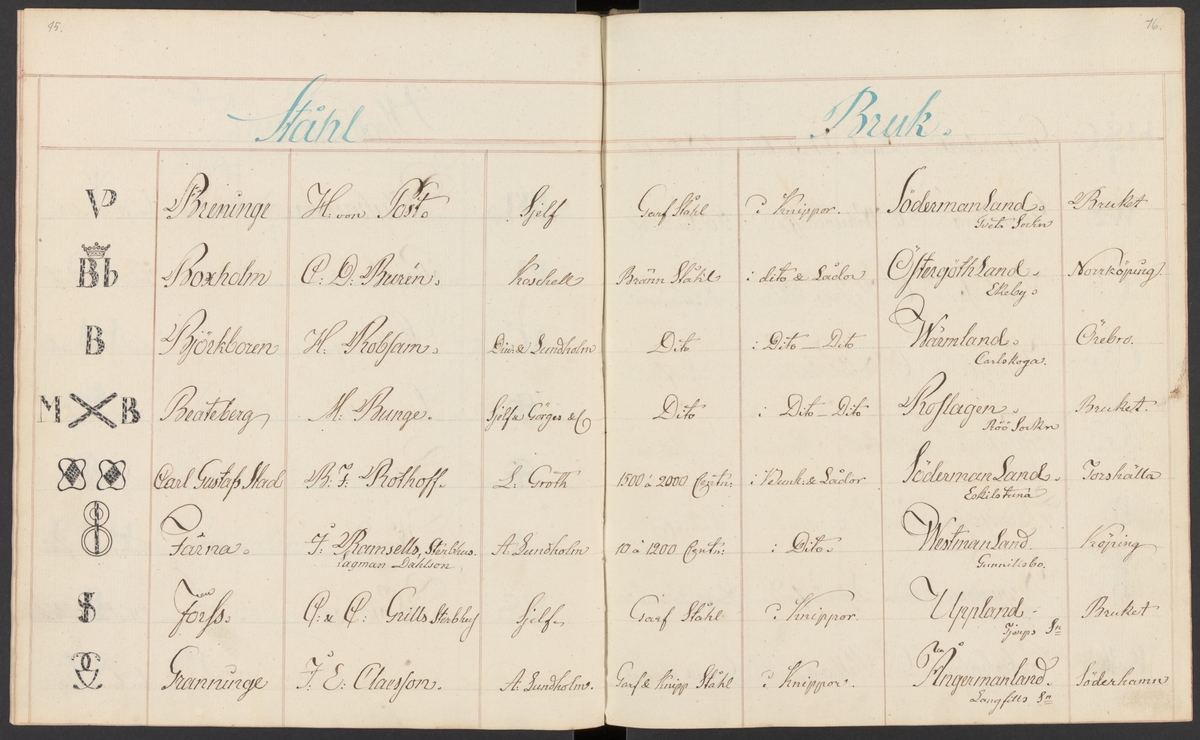 45.
76.
Ståhl
Bruk.
VP Breninge H: von Post. Sjelf Garf Ståhl i Knippor. Södermanland. Bruket
Sockn
Bb Boxholm C: D: Burén. Koschell Bränn Ståhl i dito & Lådor Östergöthland. Norrköping
Ekeby.
B Björkboren H. Robsam. Lundholm Dito i Dito - Dito Wärmland. Örebro.
Carlskoga.
M B Beateberg M: Bunge. Sjelf & Görges & C Dito i Dito - Dito Roslagen. Bruket.
Röö Sockn
Carl Gustafs Stad B: F: Rothoff. L: Groth 1500 à 2000 Centn: i & Lådor Söderman Land. Torshälla
Eskilstuna
8 Färna. F: Ramsells, Sterbhus. A. Lundholm 10 à 1200 Centn: i Dito. Westmanland. Köping
Dahlson Gunnilsbo.
Forss. C: & C: Grills Sterbhus Sjelf. Garf Ståhl i Knippor Uppland Bruket
Sn
Granninge F: E: Claesson. A: Lundholm. Garf & Knipp Ståhl i Knippor. Ångermanland. Söderhamn
Sn